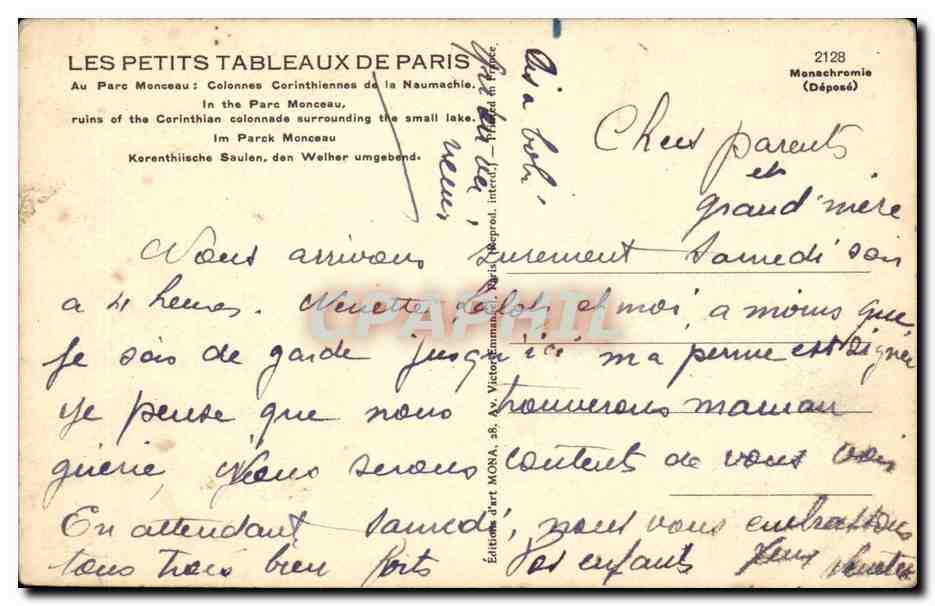 LES PETITS TABLEAUX DE PARIS
Au Parc Monceau : Colonnes Corinthiennes de la Naumachie.
In the Parc Monceau,
ruins of the Corinthian colonnade surrounding the small lake.
Im Parck Monceau
Korenthiische Saulen, den Welher umgebend.
2128
Monochromie
(Déposé)
Éditions d'art MONA, 28, Av. Victor-Emmanuel, Paris (Reprod. interd.) — Printed in France
Chers parents
et
grand'mère
Nous arrivons surement samedi soir
a 4 heures. Nenette, et moi, a moins que
je sois de garde jusqu'ici ma perme est signée
Je pense que nous trouverons maman
guérie, Nous serons contents de vous voir
En attendant samedi, nous vous embrassons
tous trois bien forts Vos enfants Nenette
CPARPHIL